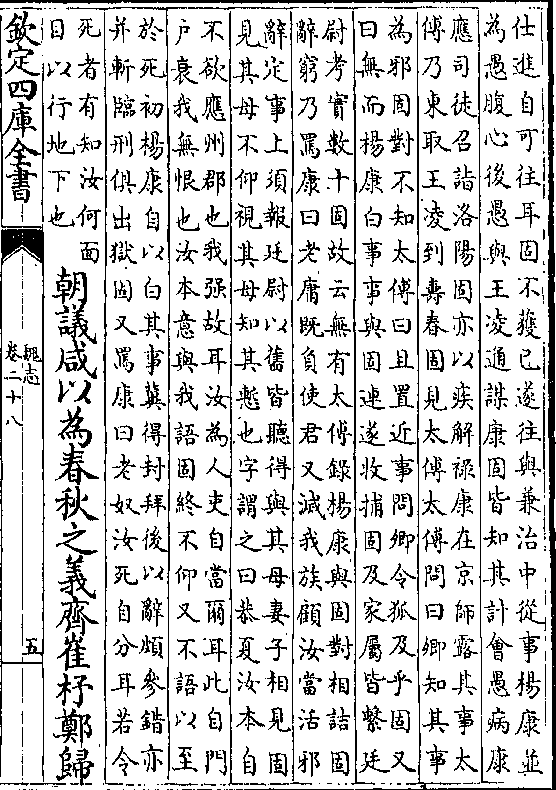 仕進自可往耳固不獲已遂往與兼治中從事楊康並
為愚腹心後愚與王凌通謀康固皆知其計會愚病康
應司徒召詣洛陽固亦以疾解祿康在京師露其事太
傅乃東取王凌到壽春固見太傅太傅問曰卿知其事
為邪固對不知太傅曰且置近事問卿令狐及乎固又
曰無而楊康白事事與固連遂收捕固及家屬皆繫廷
尉考實數十固故云無有太傅錄楊康與固對相詰固
辭窮乃罵康曰老庸既負使君又滅我族顧汝當活邪
辭定事上須報廷尉以舊皆聽得與其母妻子相見固
見其母不仰視其母知其慙也字謂之曰恭夏汝本自
不欲應州郡也我强故耳汝為人吏自當爾耳此自門
户衰我無恨也汝本意與我語固終不仰又不語以至
於死初楊康自以白其事冀得封拜後以辭頗參錯亦
并斬臨刑俱出獄固又罵康曰老奴汝死自分耳若令
死者有知汝何面
目以行地下也
朝議咸以為春秋之義齊崔杼鄭歸
欽定四庫全書
魏志
卷二十八
五